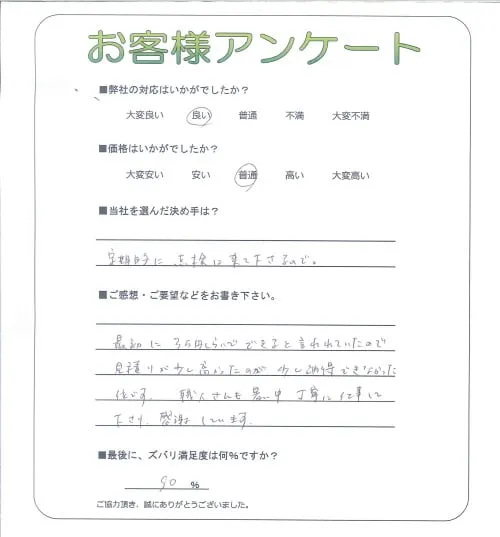 お客様アンケート
■弊社の対応はいかがでしたか？
大変良い 良い 普通 不満 大変不満
■価格はいかがでしたか？
大変安い 安い 普通 高い 大変高い
■当社を選んだ決め手は？
定期的に 点検に来て下さるので。
■ご感想・ご要望などをお書き下さい。
最初に 3万円くらいでできると言われていたので
見積りが少し高かったのが 少し納得できなかった
です。 職人さんも暑い中 丁寧に仕事して
下さり、感謝しています。
■最後に、ズバリ満足度は何％ですか？
90 ％
ご協力頂き、誠にありがとうございました。